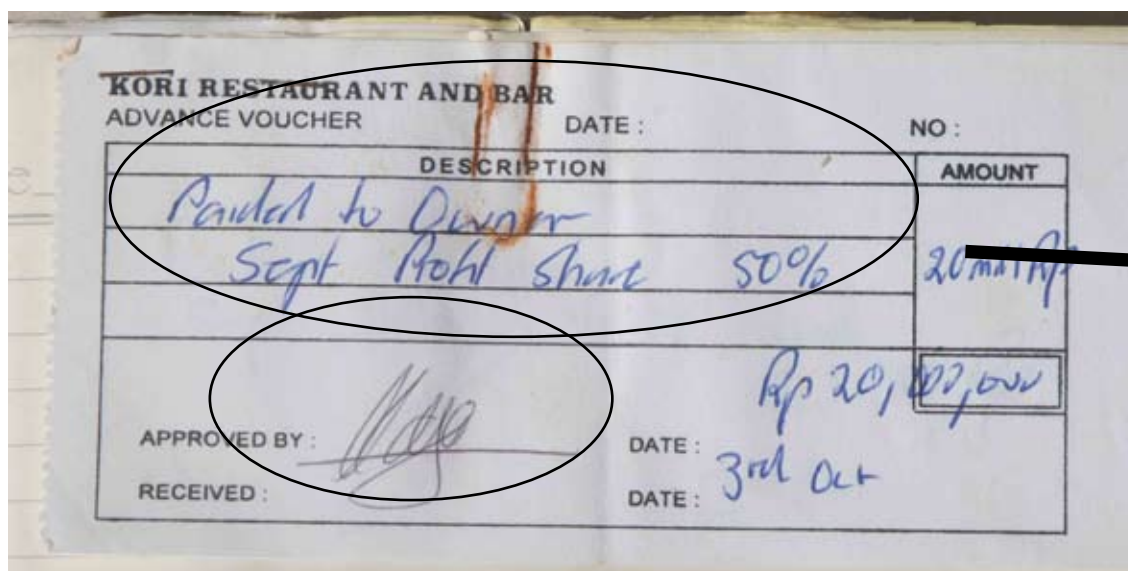 KORI RESTAURANT AND BAR
ADVANCE VOUCHER DATE : NO :
DESCRIPTION AMOUNT
Paided to Owner
Sept Profit Share 50% 20 mill Rp
Rp 20,000,000
APPROVED BY : DATE :
3rd Oct
RECEIVED : DATE :